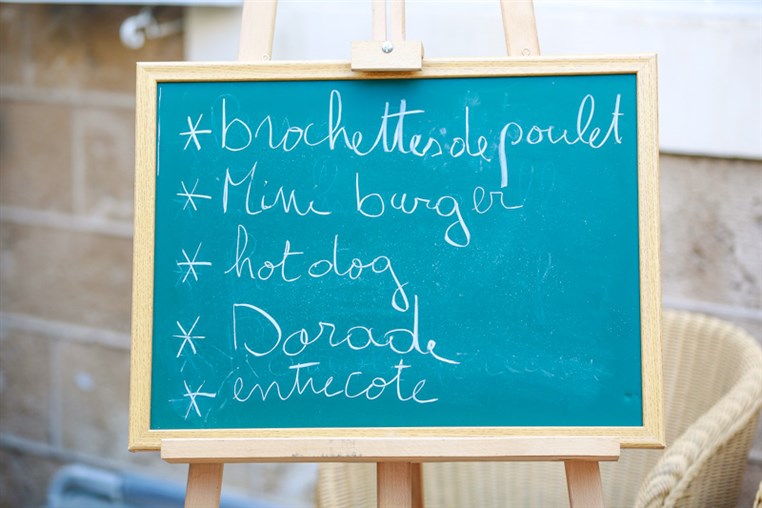 * brochettes de poulet
* Mini burger
* hot dog
* Dorade
* entrecote